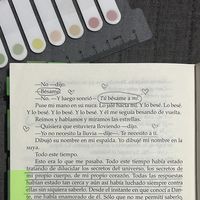 —No —dijo.
—Bésame.
—No. —Y luego sonrió—. Tú bésame a mí.
Puse mi mano en su nuca. Lo jalé hacia mí. Y lo besé.
Y lo besé. Y lo besé. Y lo besé. Y él me seguía besando de vuelta.
Reímos y hablamos y miramos las estrellas.
—Quisiera que estuviera lloviendo —dijo.
—Yo no necesito la lluvia —dije—. Te necesito a ti.
Dibujó su nombre en mi espalda. Yo dibujé mi nombre en la
suya.
Todo este tiempo.
Esto era lo que me pasaba. Todo este tiempo había estado
tratando de dilucidar los secretos del universo, los secretos de
mi propio cuerpo, de mi propio corazón. Todas las respuestas
habían estado tan cerca y aun así había luchado siempre contra
ellas sin siquiera saberlo. Desde el instante en que conocí a Dan-
te, me había enamorado de él. Sólo que no me permití saberlo,